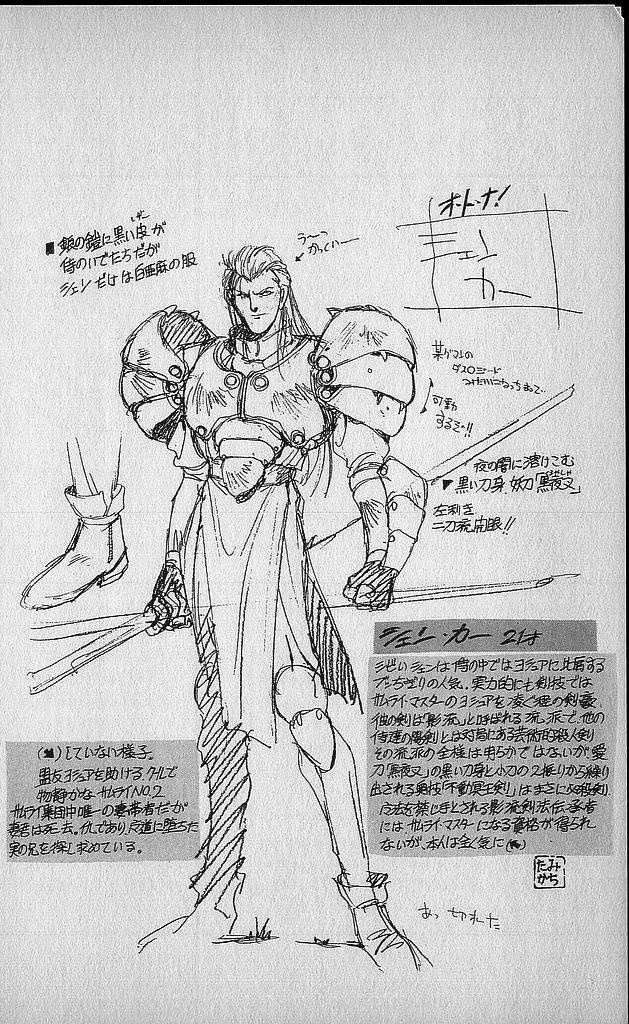 オ・ト・ナ!
シェン
カー
■銀の鎧に黒い皮が
侍のいでたちだが
シェンだけは白亜麻の服
う~っ
かっくいー
可動
するぞ!!
夜の闇に溶けこむ
▼黒い刀身、妖刀「黒夜叉」
左利き
二刀流開眼!!
シェン・カー 2は
シビいシェンは侍の中ではヨシュアに比肩する
ブッちぎりの人気。実力的にも剣技では
サムライ・マスターのヨシュアを凌ぐ程の剣豪
彼の剣は「影流」と呼ばれる流派で、他の
侍達の陽剣とは対局にある芸術的殺人剣
その流派の全様は明らかではないが、愛
刀「黒夜叉」の黒い刀身と小刀の2振りから繰り
出される奥技「不動冥王剣」はまさに必殺剣。
反法を禁じ手とされる影流剣法伝承者
にはサムライ・マスターになる資格が得られ
ないが、本人は全く気に(
)していない様子。
盟友ヨシュアを助ける、クールで
物静かなサムライNO.2
サムライ集団中唯一の妻帯者だが
妻君は死去。仇であり、反道に堕ちた
実の兄を探し求めている。
たみ
かち
あっ 切れた